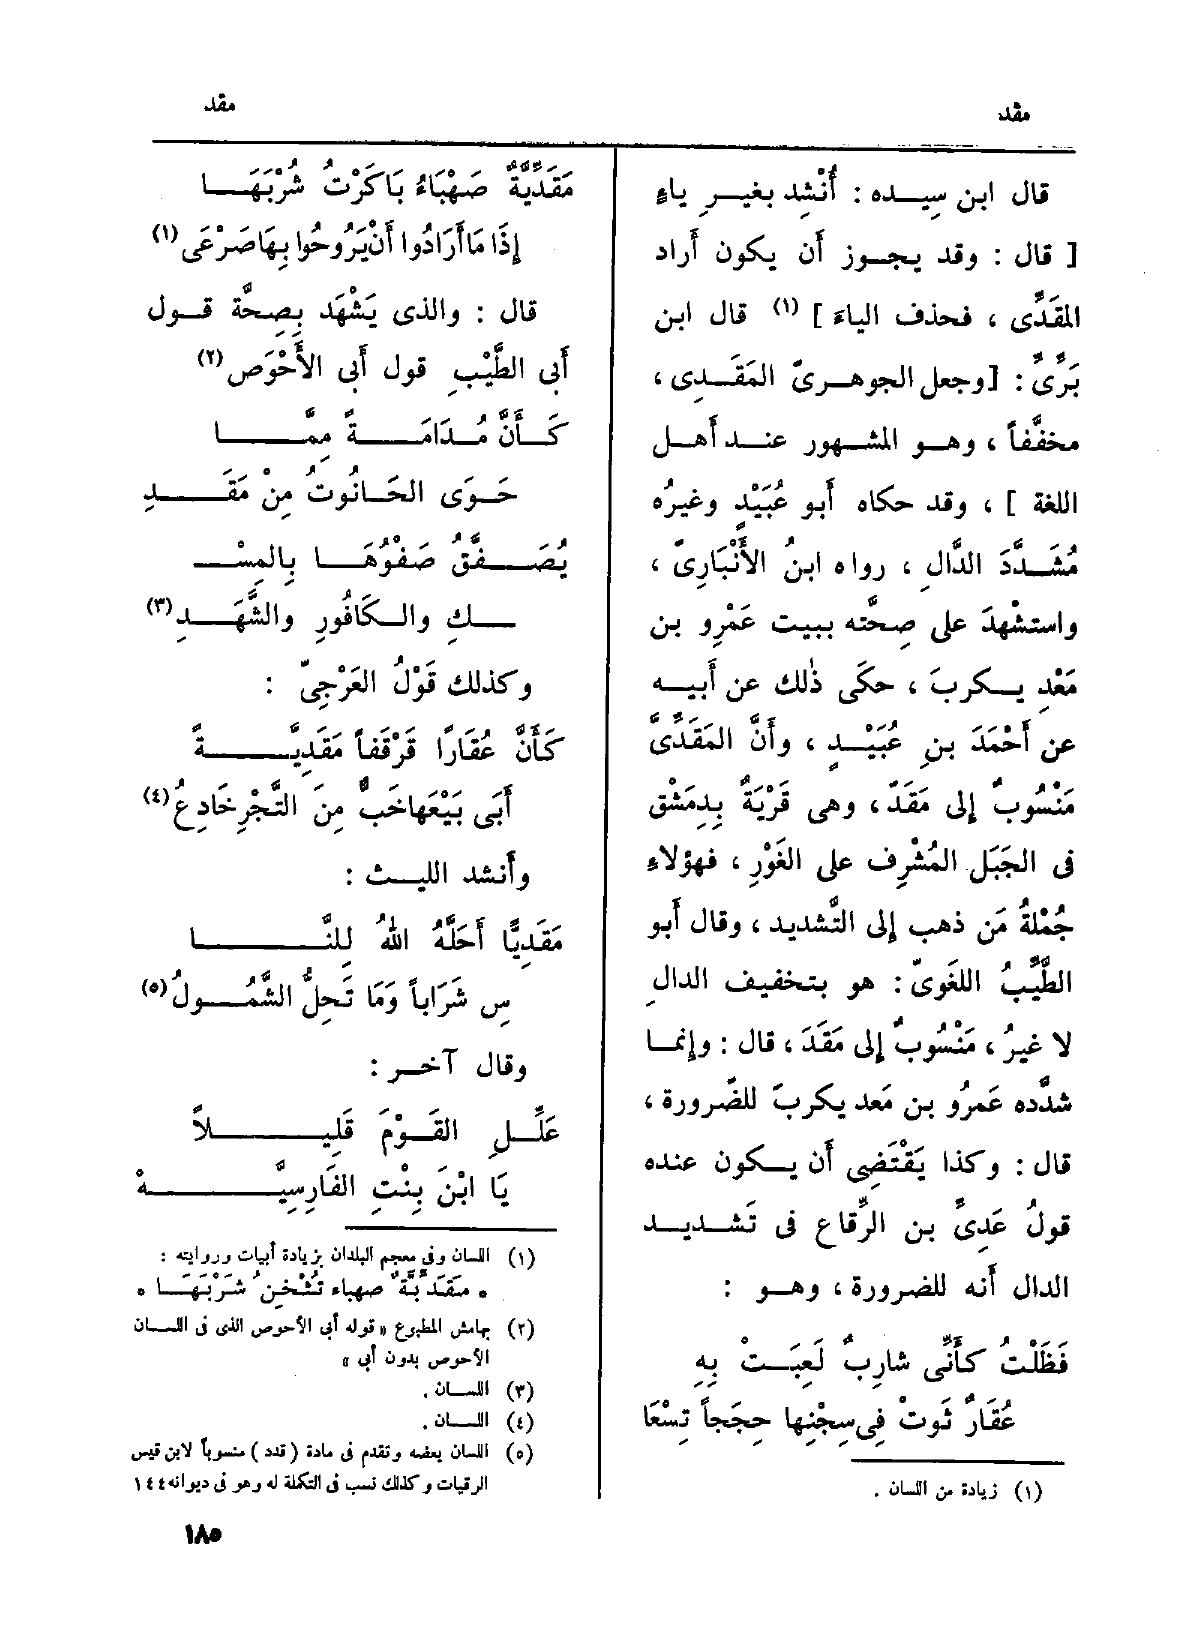 مقد
مقد
قال ابن سِيده : أُنْشِد بغيرِ ياءٍ
[ قال : وقد يجوز أن يكون أَراد
المَقَدِّى ، فحذف الياءَ ] (١) قال ابن
بَرِّىٌّ : [وجعل الجوهرىّ المَقَدِى ،
مخفَّفاً ، وهو المشهور عند أَهل
اللغة ] ، وقد حكاه أَبو عُبَيْدٍ وغيرُه
مُشَدَّدَ الدَّالِ ، رواه ابنُ الأَنْبَارِىّ ،
واستشْهدَ على صِحَّته ببيت عَمْرِو بن
مَعْدِ يكرِبَ ، حكَى ذٰلك عن أَبيه
عن أَحْمَدَ بنِ عُبَيْدٍ ، وأَنَّ المَقَدِّىَّ
مَنْسُوبٌ إِلى مَقَدّ ، وهى قَرْيَةٌ بِدِمَشْق
فى الجَبَلِ المُشْرِف على الغَوْرِ ، فهؤلاءِ
جُمْلةُ مَن ذهب إِلى التَّشديد ، وقال أَبو
الطَّيِّبُ اللغوىّ : هو بتخفيف الدالِ
لا غيرُ ، مَنْسُوبٌ إِلى مَقَدَ ، قال : وإِنما
شدَّده عَمرُو بن مَعد يكرِبَ للضَّرورة ،
قال : وكذا يَقْتَضِى أَن يكون عنده
قولُ عَدِىِّ بن الرِّقاع فى تَشديد
الدال أَنه للضرورة ، وهو :
فَظَلْتُ كأَنِّى شارِبٌ لَعِبَتْ بِهِ
عُقَارٌ ثَوتْ فِى سِجْنِها حِجَجاً تِسْعَا
(١) زيادة من اللسان .
مَقَدِّيَّةٌ صَهْبَاءُ بَاكَرْتُ شُرْبَهَا
إِذَا مَا أَرَادُوا أَنْ يَرُوحُوا بِهَا صَرْعَى (١)
قال : والذى يَشْهَد بِصِحَّة قول
أَبى الطَّيْبِ قول أَبى الأَحْوَص (٢)
كَأَنَّ مُدَامَةً مِمَّا
حَوَى الحَانُوتُ مِنْ مَقَدِ
يُصَفَّقُ صَفْوُهَا بِالمِسْـ
ـكِ والكَافُورِ والشَّهَدِ (٣)
وكذلك قَوْلُ العَرْجِىّ :
كَأَنَّ عُقَارًا قَرْقَفاً مَقَدِيَّةً
أَبَى بَيْعَها خَبٌّ مِنَ التَّجْرِ خَادِعُ (٤)
وأَنشد الليث :
مَقَدِيًّا أَحَلَّهُ اللهُ لِلنَّا
سِ شَرَاباً وَمَا تَحِلُّ الشَّمُولُ (٥)
وقال آخر :
عَلِّلِ القَوْمَ قَلِيلاً
يَا ابْنَ بِنْتِ الفَارِسِيَّهْ
(١) اللسان وفى معجم البلدان بزيادة أبيات وروايته :
* مَقَدِّيَّةٌ صهباء تُثْخِنُ شَرْبَهَا *
(٢) بهامش المطبوع « قوله أبى الأحوص الذى فى اللسان
الأحوص بدون أبى »
(٣) اللسان .
(٤) اللسان .
(٥) اللسان بعضه وتقدم فى مادة ( قدد ) منسوباً لابن قيس
الرقيات وكذلك نسب فى التكلة له وهو فى ديوانه ١٤٤
١٨٥